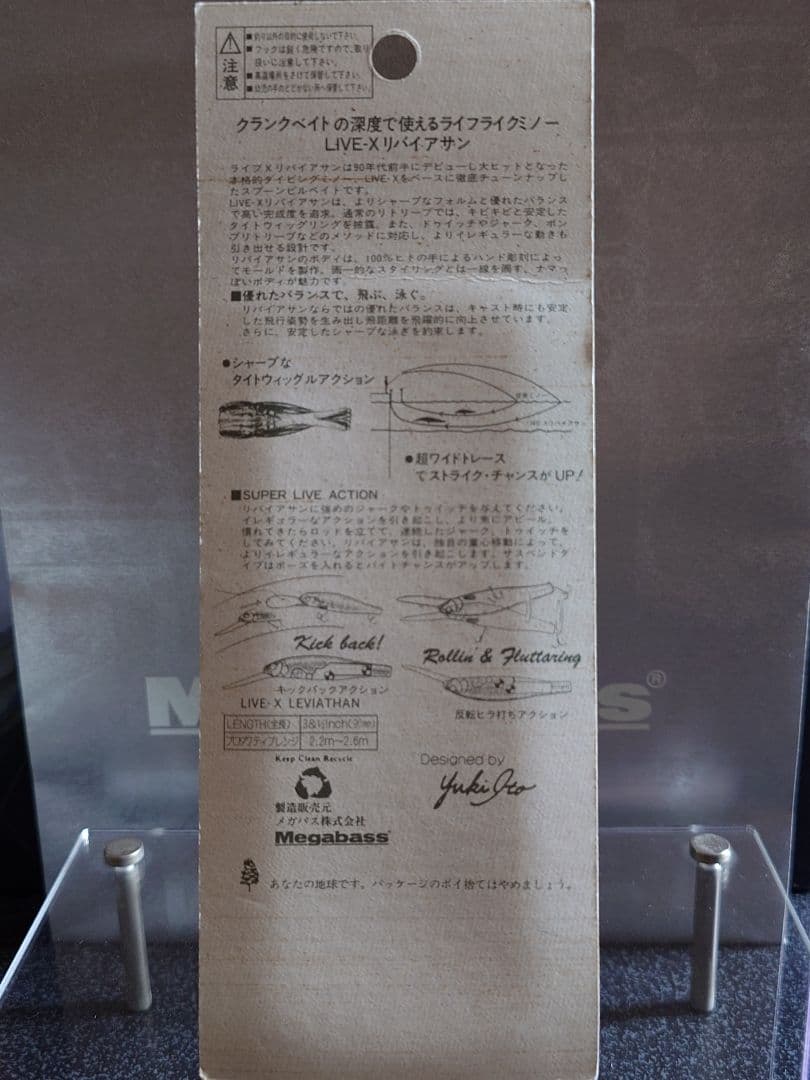 注意
■釣り以外の目的に使用しないで下さい。
■フックは鋭く危険ですので、取り
扱いに注意して下さい。
■高温場所をさけて保管して下さい。
■幼児の手のとどかない所へ保管して下さい。
クランクベイトの深度で使えるライフライクミノー
LIVE-Xリバイアサン
ライブXリバイアサンは90年代前半にデビューし大ヒットとなった
本格的ダイビングミノー、LIVE-Xをベースに徹底チューンナップし
たスプーンビルベイトです。
LIVE-Xリバイアサンは、よりシャープなフォルムと優れたバランス
で高い完成度を追求。通常のリトリーブでは、キビキビと安定した
タイトウィッグリングを披露。また、トゥイッチやジャーク、ポン
プリトリーブなどのメソッドに対応し、よりイレギュラーな動きも
引き出せる設計です。
リバイアサンのボディは、100%ヒトの手によるハンド彫刻によっ
てモールドを製作。画一的なスタイリングとは一線を画す、ナマっ
ぽいボディが魅力です。
■優れたバランスで、飛ぶ、泳ぐ。
リバイアサンならではの優れたバランスは、キャスト時にも安定
した飛行姿勢を生み出し飛距離を飛躍的に向上させています。
さらに、安定したシャープな泳ぎを約束します。
●シャープな
タイトウィッグルアクション
●超ワイドトレース
でストライク・チャンスがUP!
■SUPER LIVE ACTION
リバイアサンに強めのジャークやトゥイッチを与えてください。
イレギュラーなアクションを引き起こし、より魚にアピール。
慣れてきたらロッドを立てて、連続したジャーク、トゥイッチを
してみてください。リバイアサンは、独自の重心移動によって、
よりイレギュラーなアクションを引き起こします。サスペンドタ
イプはポーズを入れるとバイトチャンスがアップします。
Kick back!
キックバックアクション
Rollin' & Fluttaring
反転ヒラ打ちアクション
LIVE-X LEVIATHAN
LENGTH(全長)
プロダクティブレンジ 2.2m〜2.6m
Keep Clean Recycle
製造販売元
メガバス株式会社
Megabass
Designed by
Yuki Ito
あなたの地球です。パッケージのポイ捨てはやめましょう。